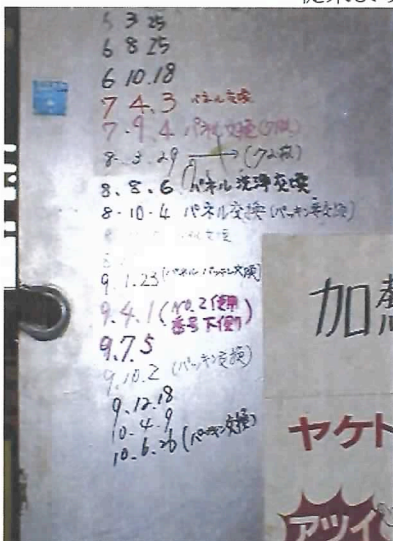 6 3 25
6 8 25
6 10.18
7 4.3 パネル交換
7.9.4 パネル交換(72枚)
8.3.29 → (72枚)
8.8.6 パネル洗浄交換
8.10.4 パネル交換(パッキン交換)
9.1.23
9.4.1(No.2使用
番号下側)
9.7.5
9.10.2(パッキン交換)
9.12.18
10.4.9
10.6.26(パッキン交換)
加
ヤケト
アツイ